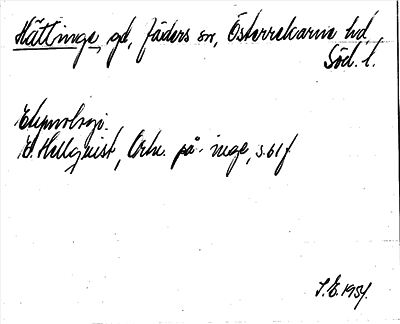 Hättinge, gd, Jäders sn, Österrekarne hd,
Söd. l.
Etymologi.
E. Hellquist, Ortn. på -inge, s. 61 f
S.E. 1954.